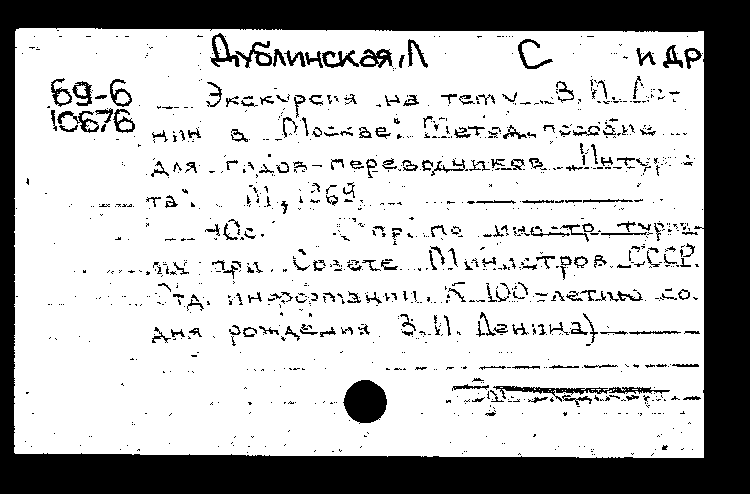 Дублинская, Л С и др.
69-6
10676
Экскурсия на тему „В. И. Ле-
нин в Москве“. Метод. пособие
для гидов-переводников „Интурис-
та“. М., 1969.
40с. (Упр. по иностр. туриз-
му при Совете Министров СССР.
Отд. информации. К 100-летию со
дня рождения В. И. Ленина)